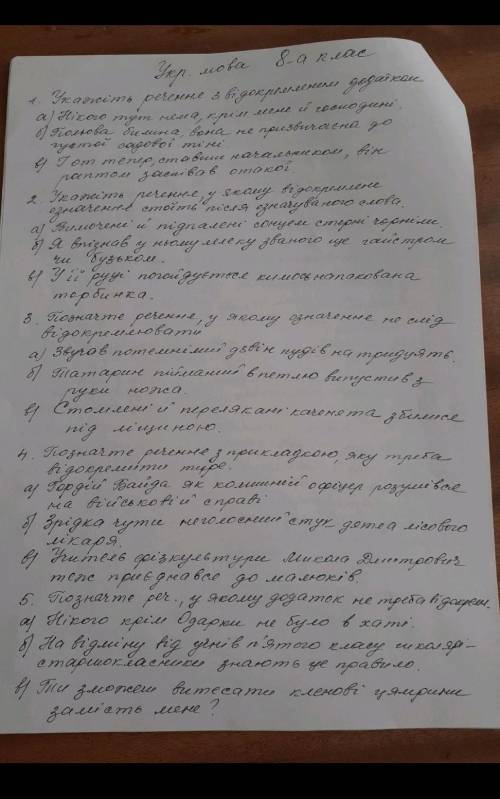 Укр. мова 8-а клас
1. Укажіть речення з відокремленим додатком
а) Нікого тут нема, крім мене й господині.
б) Полова билина, вона не призвичаєна до
густої садової тіні
в) І от тепер, ставши начальником, він
раптом заспівав отакої
2. Укажіть речення, у якому відокремлене
означення стоїть після означуваного слова.
а) Вимочені й підпалені сонцем стерні чорніли.
б) Я впізнав у ньому лелеку званого ще гайстром
чи бузьком.
в) У її руці погойдується кимось напакована
торбинка.
3. Позначте речення, у якому означення не слід
відокремлювати
а) Звучав потемнілий дзвін пудів на тридцять.
б) Татарин пійманий в петлю випустив з
руки ножа.
в) Стомлені й перелякані каченята збилися
під ліщиною.
4. Позначте речення з прикладкою, яку треба
відокремити тире.
а) Гордій Байда як колишній офіцер розумівся
на військовій справі
б) Зрідка чути неголосний стук дятла лісового
лікаря.
в) Учитель фізкультури Микола Дмитрович
теж приєднався до малюків.
5. Позначте реч., у якому додаток не треба відокрем.
а) Нікого крім Одарки не було в хаті.
б) На відміну від учнів п'ятого класу школярі-
старшокласники знають це правило.
в) Ти зможеш витесати кленові цямрини
замість мене?